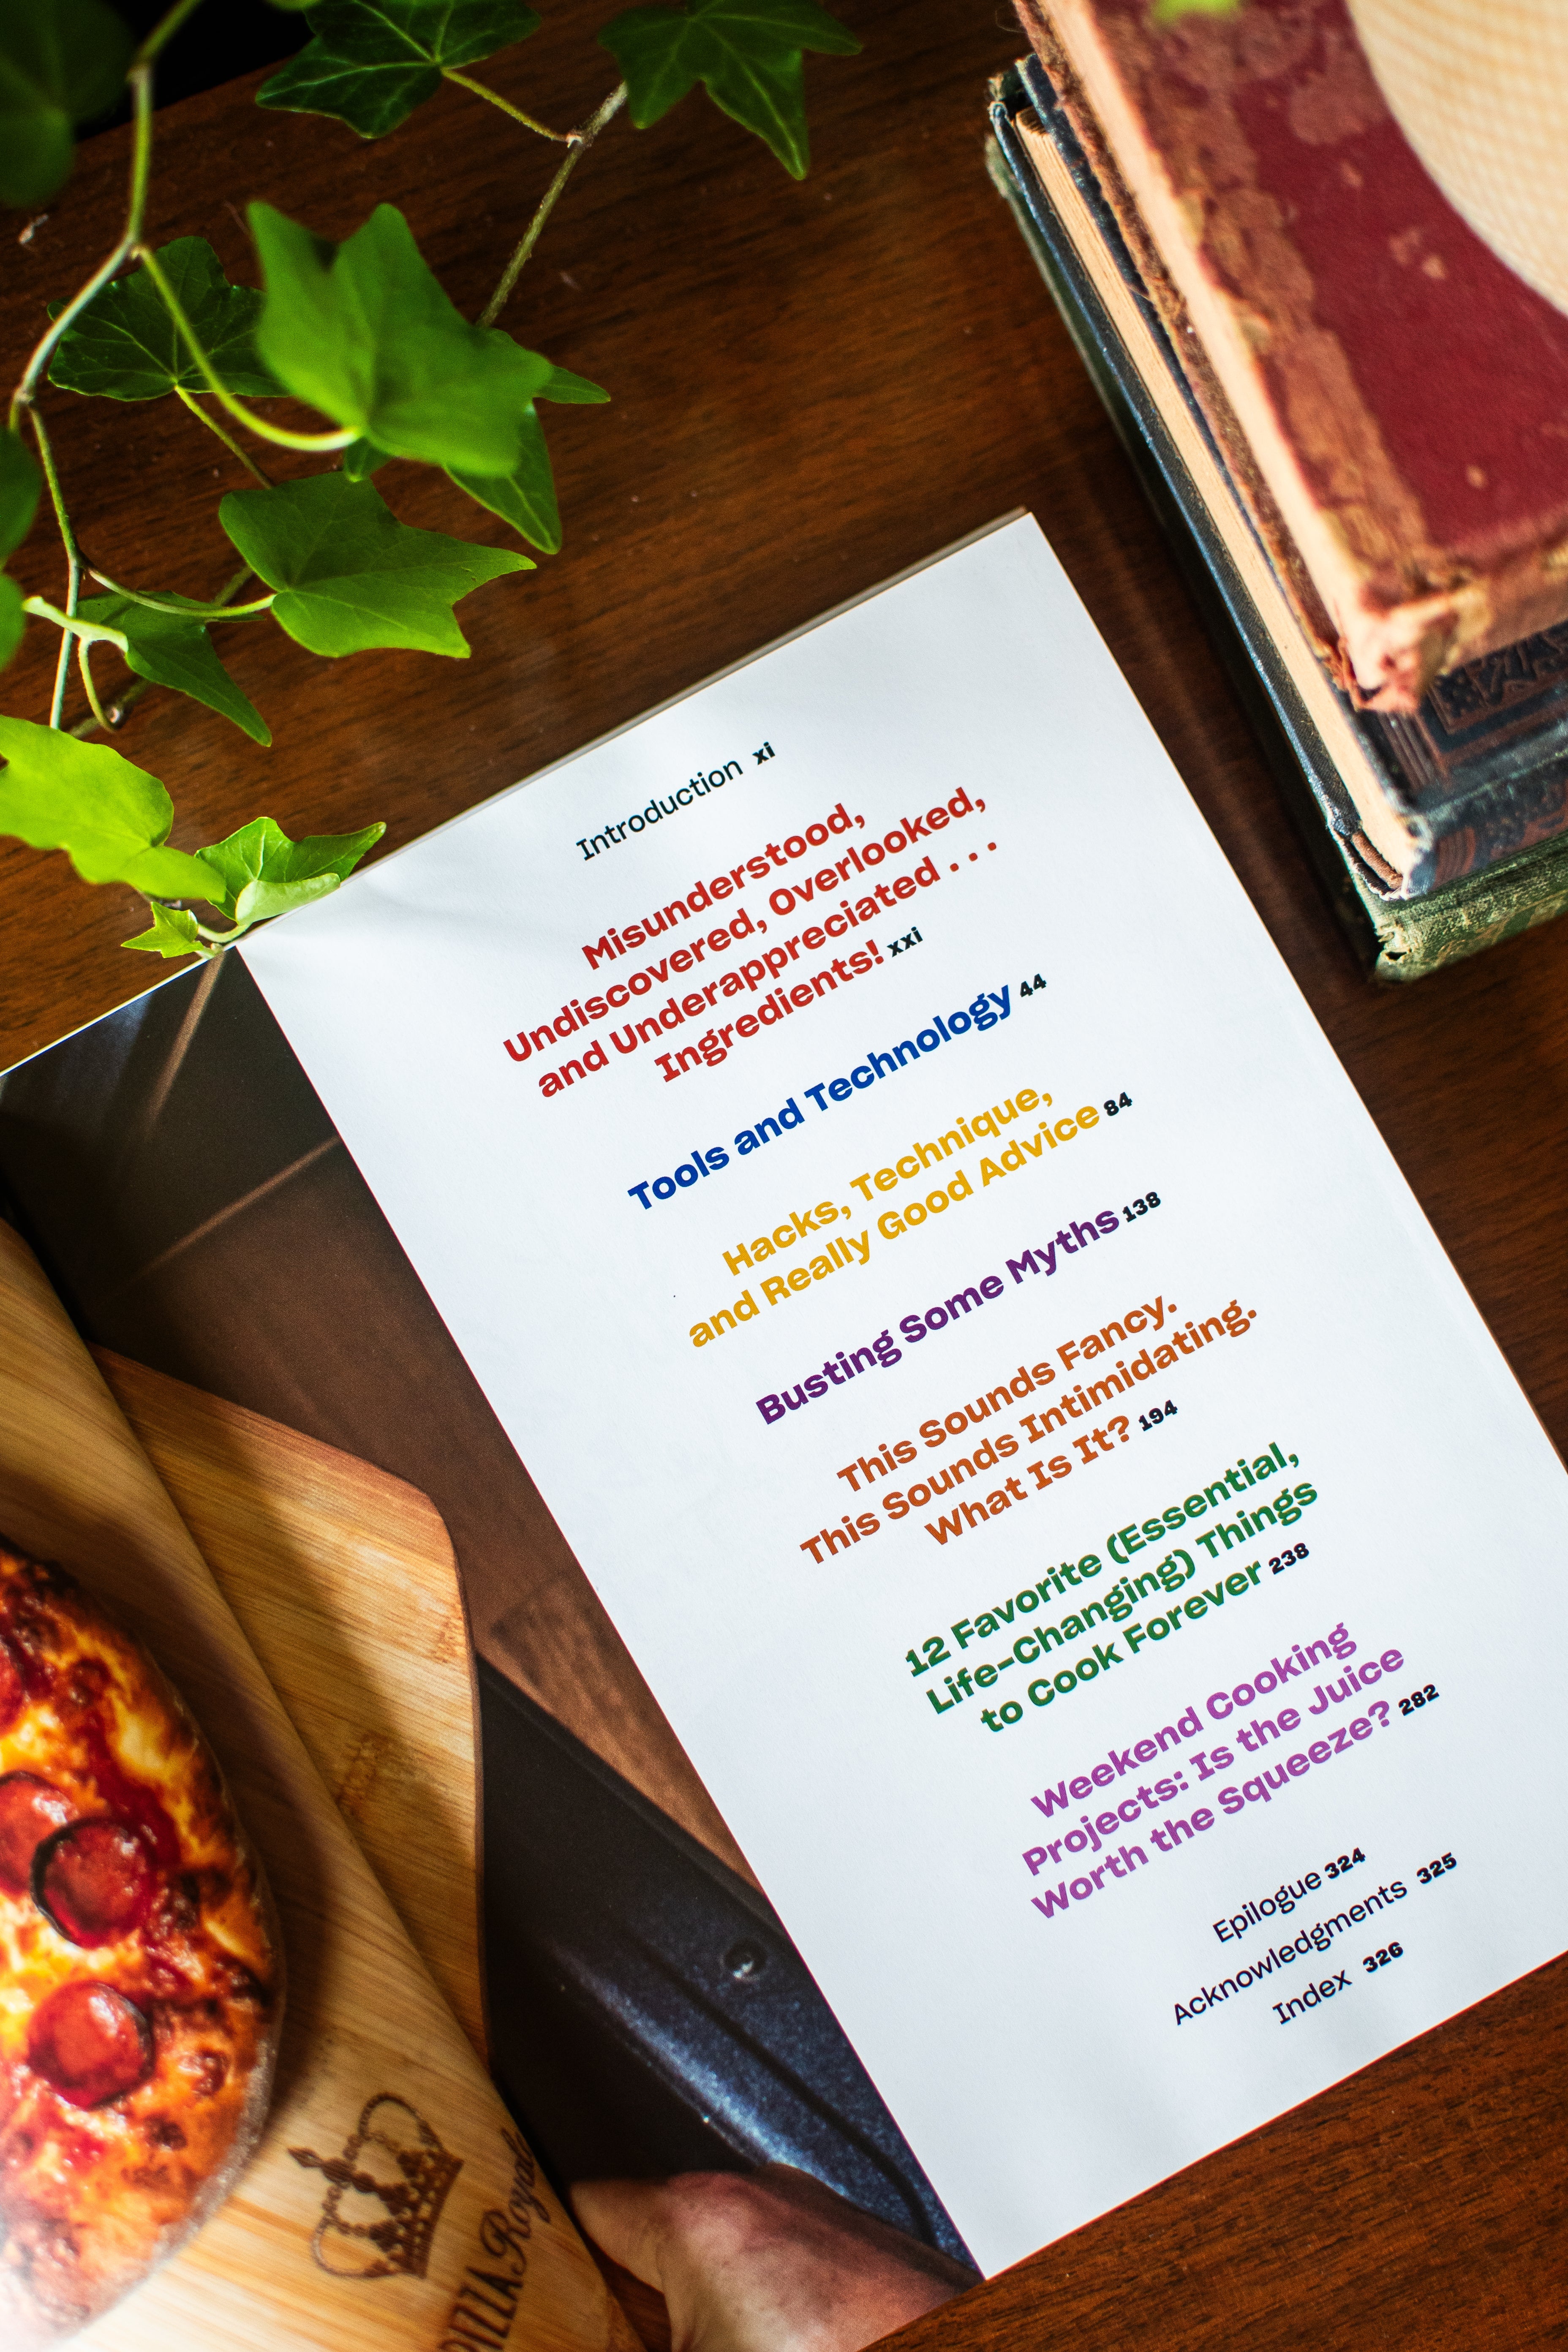 Introduction xi
Misunderstood,
Undiscovered, Overlooked,
and Underappreciated . . .
Ingredients! xxi
Tools and Technology 44
Hacks, Technique,
and Really Good Advice 84
Busting Some Myths 138
This Sounds Fancy.
This Sounds Intimidating.
What Is It? 194
12 Favorite (Essential,
Life-Changing) Things
to Cook Forever 238
Weekend Cooking
Projects: Is the Juice
Worth the Squeeze? 282
Epilogue 324
Acknowledgments 325
Index 326